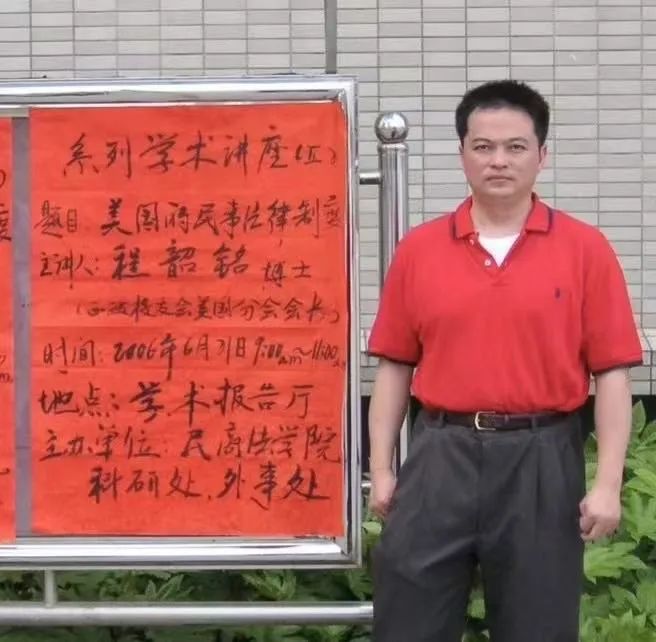 系列学术讲座(二)
题目: 美国的民事法律制度
主讲人: 程韶铭 博士
(西政校友会美国分会会长)
时间: 2006年6月21日9:00am~11:00a
地点: 学术报告厅
主办单位: 民商法学院
科研处、外事处